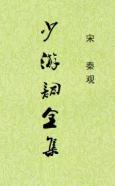 宋 秦观
少游词全集